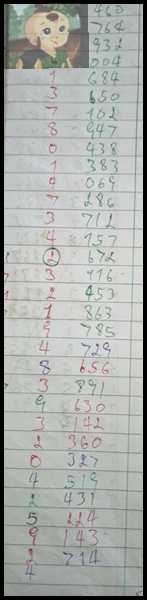 460
764
932
004
1 684
3 650
7 102
8 947
0 438
1 383
4 069
7 286
3 712
4 157
2 672
3 116
2 453
1 863
9 785
4 729
8 656
3 891
9 630
3 142
2 360
0 327
4 519
2 431
5 224
9 143
2 714
4